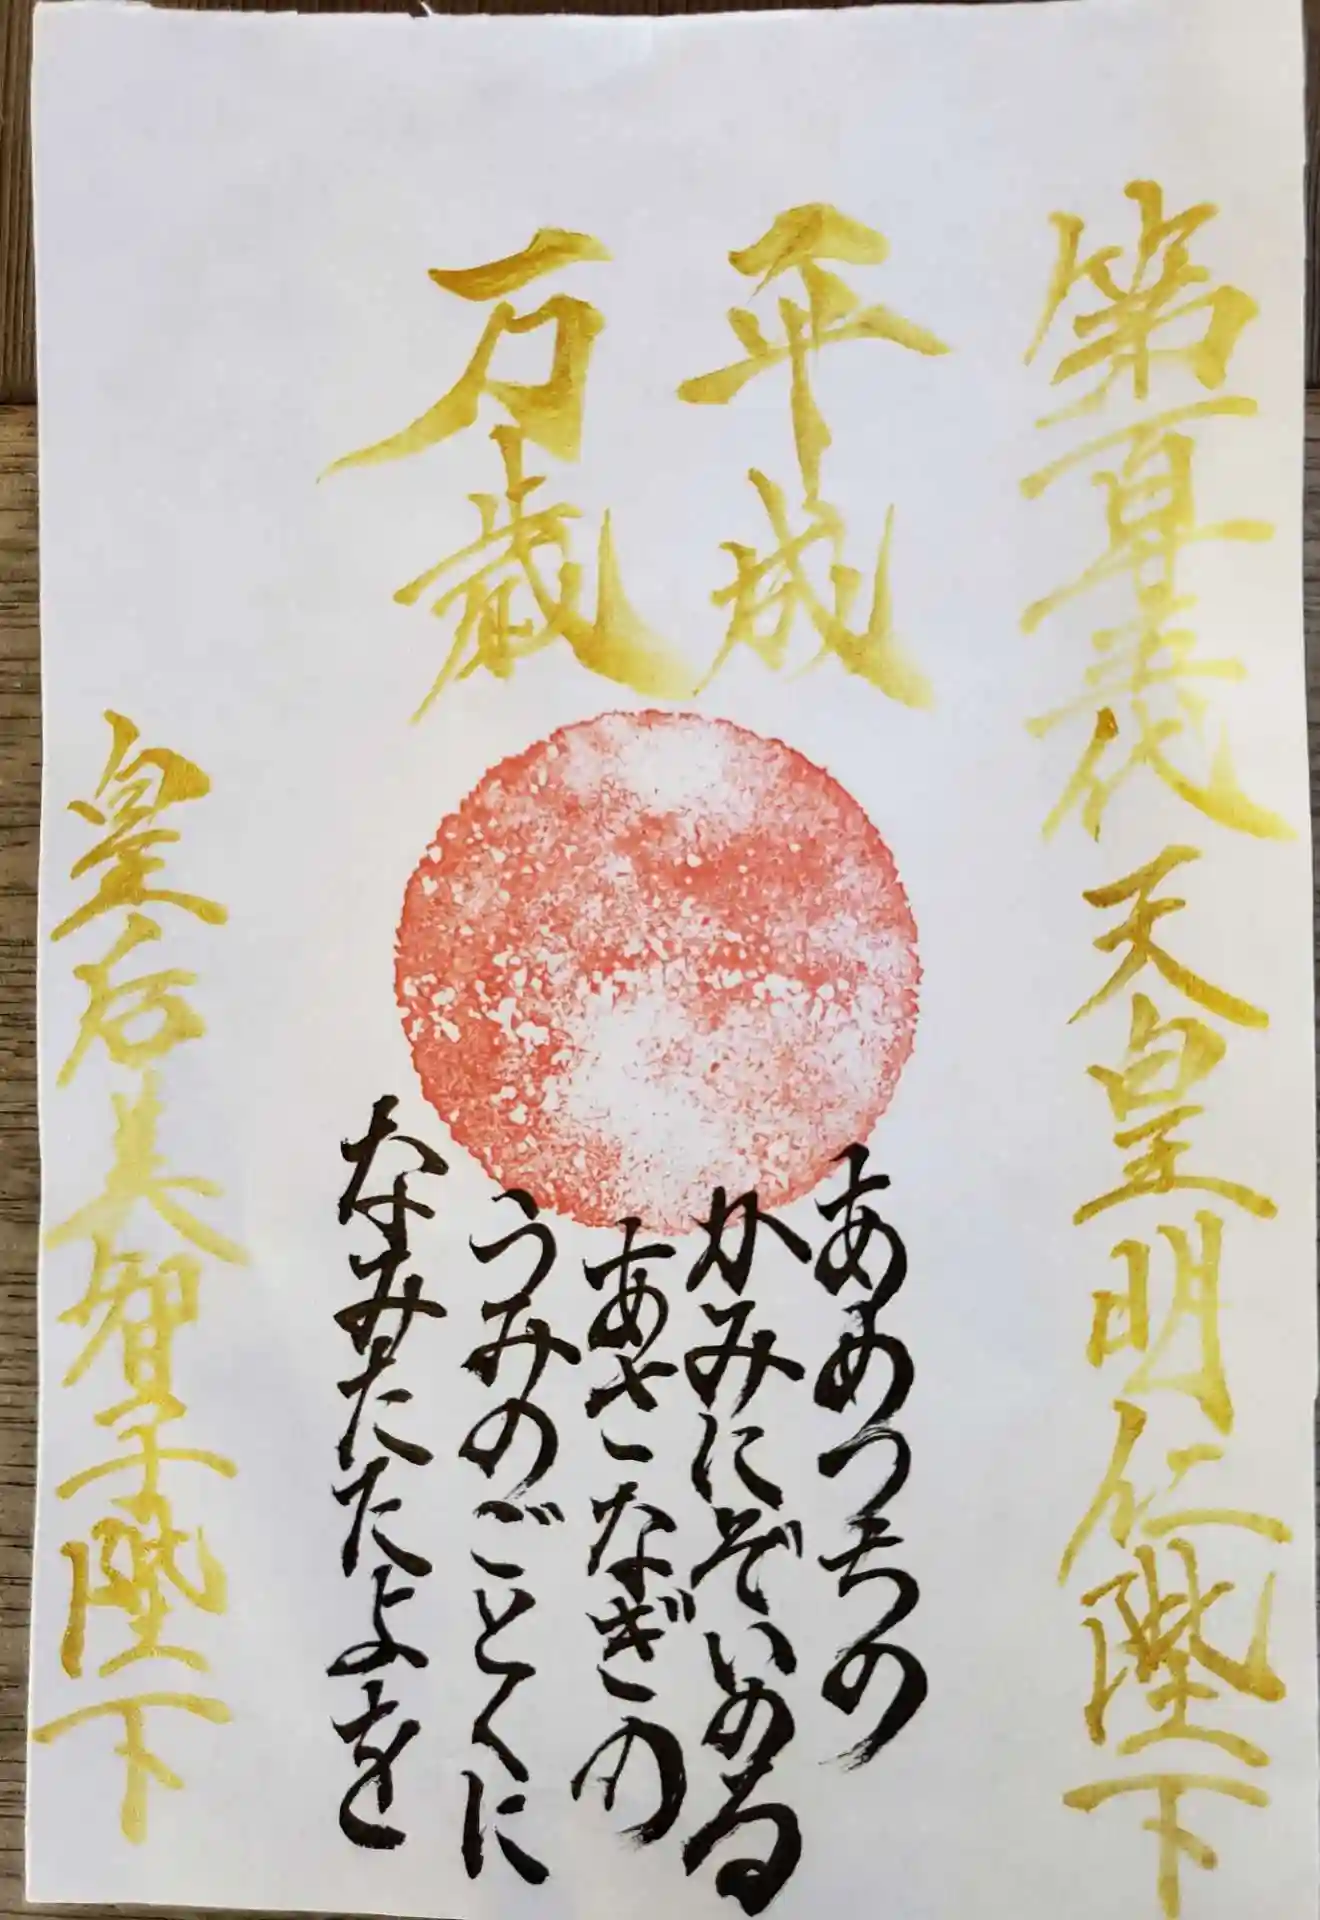 第百廿五代 天皇明仁陛下
平成
万歳
あめつちの
かみにぞいのる
あさなぎの
うみのごとくに
なみたたよを
皇后美智子陛下